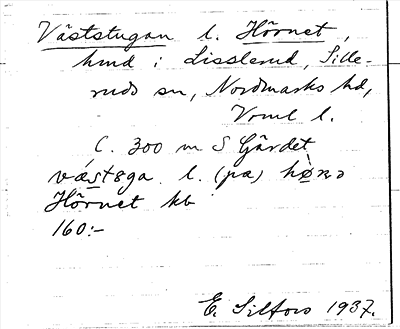 Väststugan l. Hörnet,
hmd i Lisslerud, Sille-
ruds sn, Nordmarks hd,
Vrml l.
C. 300 m S Gärdet
västǝga l. (pa)
Hörnet kb
160:-
E. Silfors 1937.